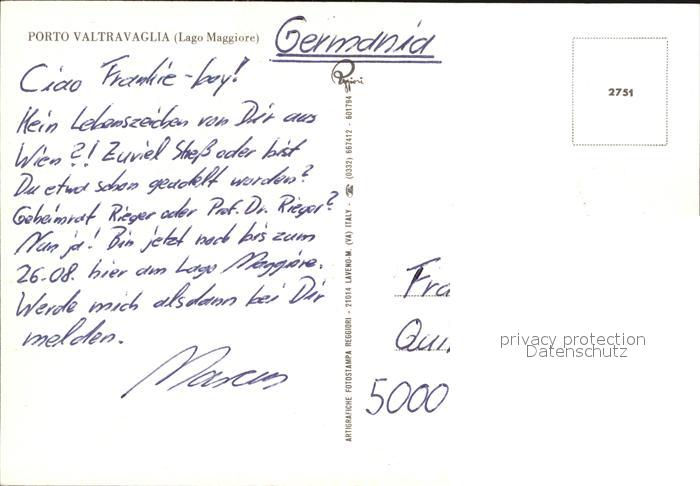 PORTO VALTRAVAGLIA (Lago Maggiore)
Germania
Ciao Frankie-boy!
Kein Lebenszeichen von Dir aus
Wien?! Zuviel Streß oder bist
Du etwa schon geadelt worden?
Geheimrat Rieger oder Prof. Dr. Rieger?
Nun ja! Bin jetzt noch bis zum
26.08. hier am Lago Maggiore.
Werde mich alsdann bei Dir
melden.
Marcus
ARTIGRAFICHE FOTOSTAMPA REGGIORI - 21014 LAVENO-M. (VA) ITALY - ☎ (0332) 667412 - 601794
2751
Fra
Qui
5000
privacy protection
Datenschutz